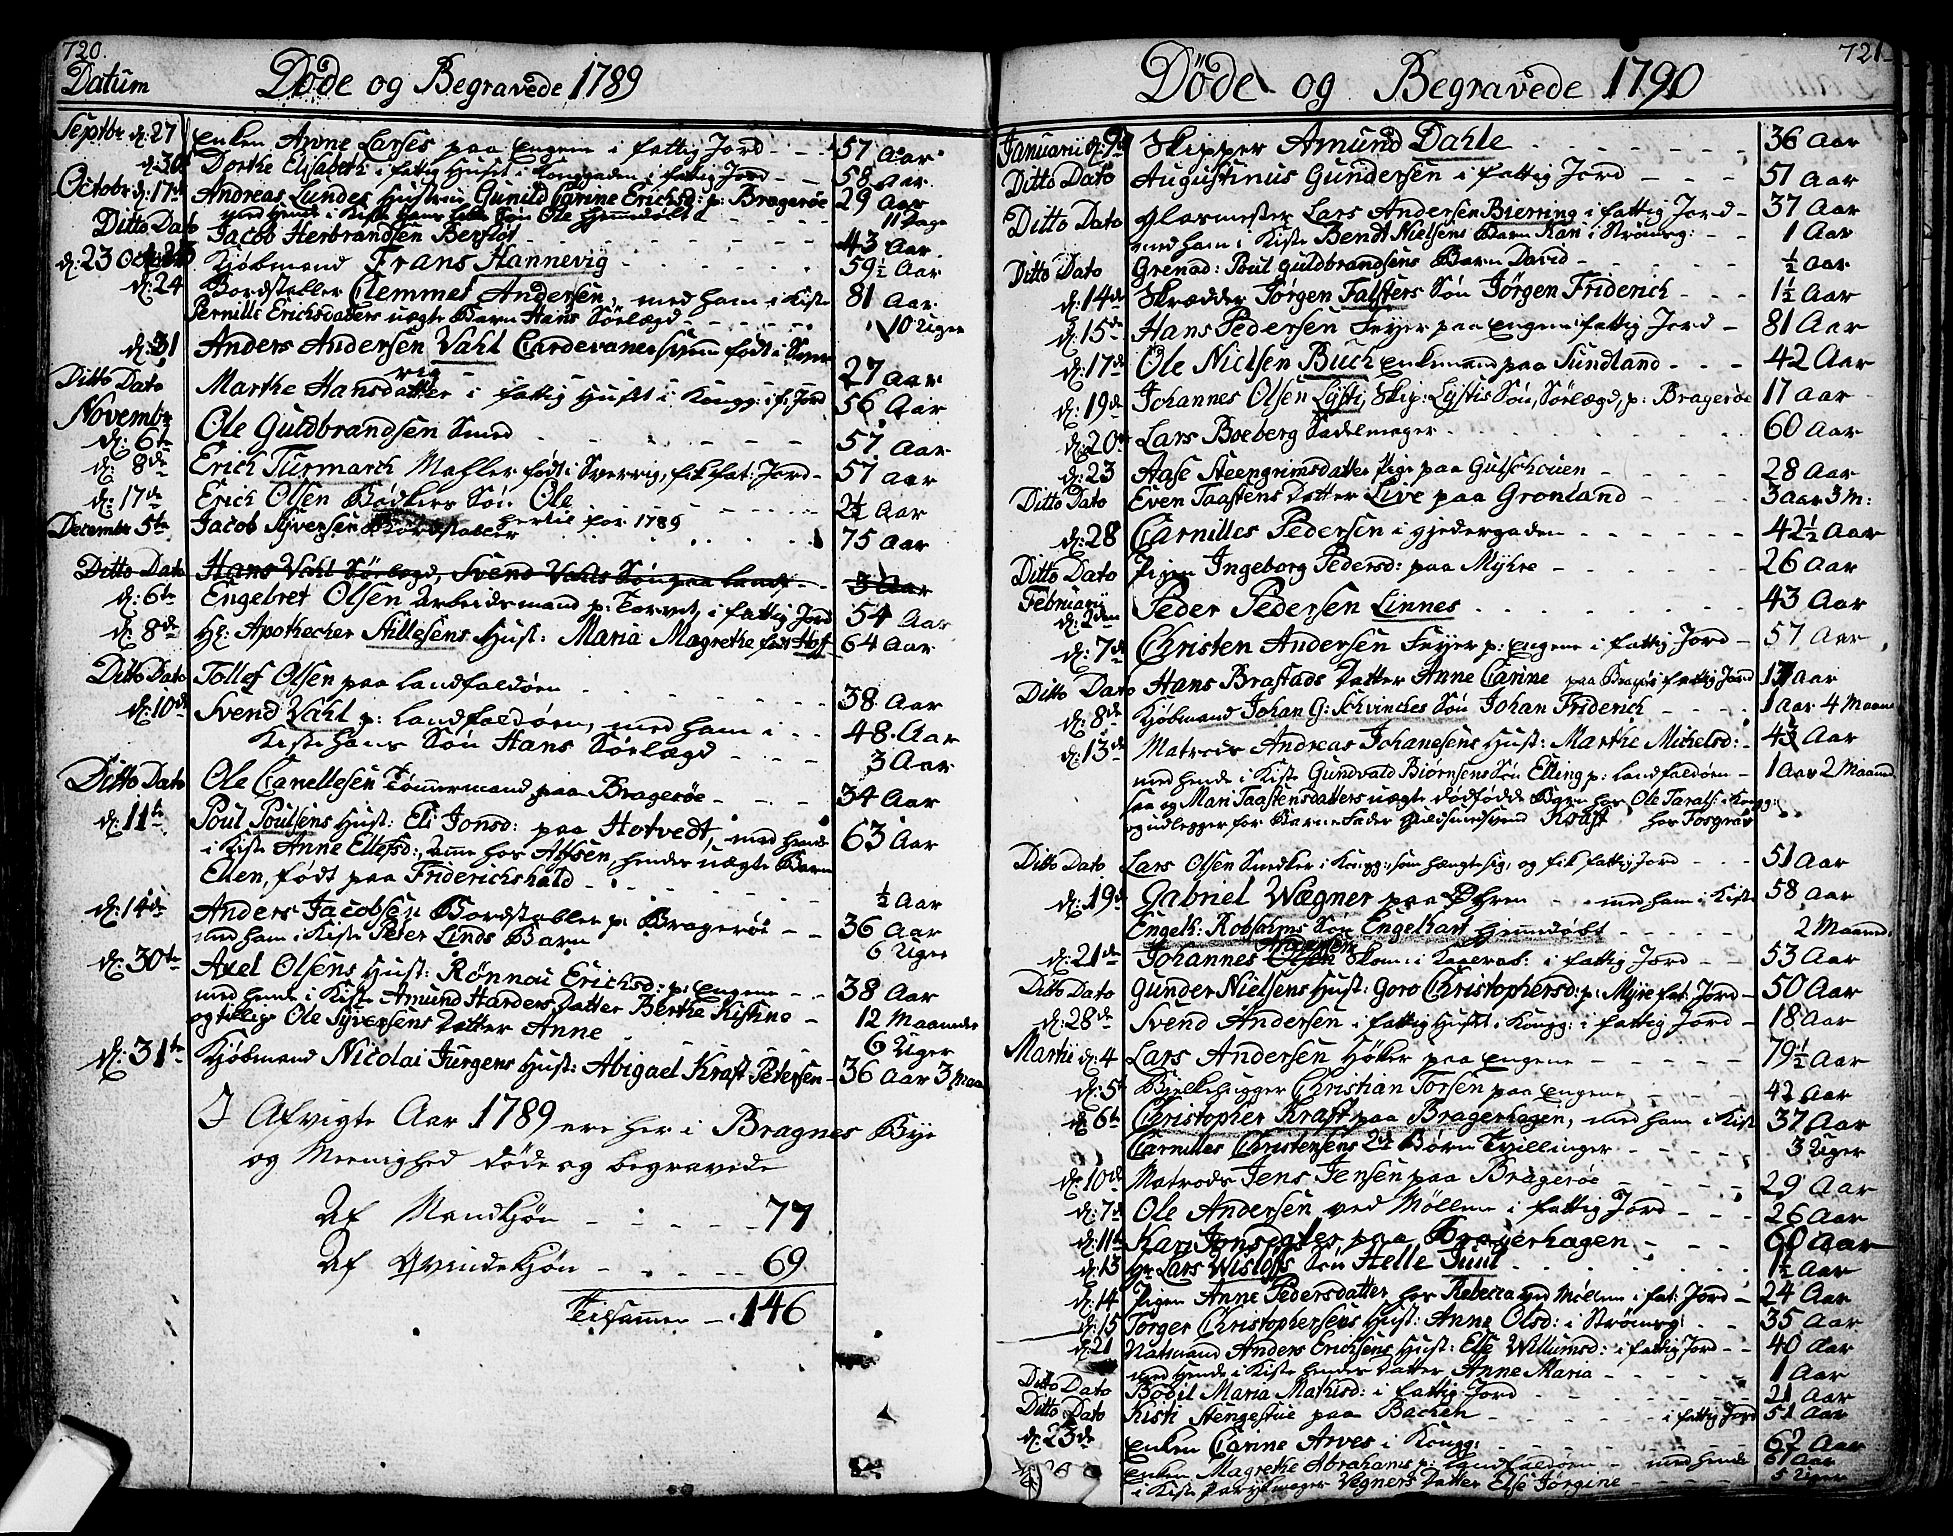 720.
Datum Døde og Begravede 1789
Septbr d: 27 Enken Anne Larses paa Engene i fattig Jord - - 57 Aar
d: 30 Dorthe Elisabeth i fattig Huset i Konggaden i fattig Jord - - 58 Aar
Octobr d: 17de Andreas Lundes Hustrue Gunild Carine Erichsd: p: Bragerøe 29 Aar
med hende i Kiste hans Søn Ole Hjemmedøbt - - 11 Dage
Ditto Dato Jacob Herbrandsen Berstøt - - 43 Aar
d: 23 Kjøbmand Frans Hannevig - - 59½ Aar
d: 24 Bordstabler Clemmet Andersen, med ham i Kiste 81 Aar
Pernille Erichsdatters uægte Barn Hans Sørlægd - - 10 Uger
d: 31 Anders Andersen Vahl Cardevanersvenn født i Sver
rig - 27 Aar
Ditto Dato Marthe Hansdatter i fattig Huset i Kongg: i f: Jord 56 Aar
Novembr
d: 6te Ole Guldbrandsen Smed - - 57 Aar
d: 8de Erich Turmarch Mahler født i Sverrig, fik fat: Jord - 57 Aar
d: 17de Erich Olsen Bødkers Søn Ole - - 2¼ Aar
hertil for 1789
Decembr 5te Jacob Syversen Bordstabler - - 75 Aar
Ditto Dato Hans Vahl Sørlægd, Svend Vahls Søn paa Landf - - 3 Aar
d: 6te Engebret Olsen Arbeidsmand p: Torvet, i fattig Jord 54 Aar
d: 8de Hr: Apothecher Hillesens Hust: Maria Magrethe født Hoff 64 Aar
Ditto Dato Tollef Olsen paa Landfaldøen - - 38 Aar
d: 10de Svend Vahl p: Landfaldøen, med ham i - - 48 Aar
Kiste hans Søn Hans Sørlægd - - 3 Aar
Ditto Dato Ole Canellesen Tømmermand paa Bragerøe - - 34 Aar
d: 11te Poul Poulsens Hust: Eli Jonsd: paa Hotvedt, med hende 63 Aar
i Kiste Anne Ellefsd:, Amme hos Alfsen, hendes uægte Barn
Ellen, født paa Friderichshald - - ½ Aar
d: 14de Anders Jacobsen Bordstabler p: Bragerøe - - 36 Aar
med ham i Kiste Peter Linds Barn 6 Uger
d: 30te Axel Olsens Hust: Rønnau Erichsd: p: Engene - - 38 Aar
med hende i Kiste Amund Harders Datter Berthe Kistine - 12 Maaneder
og tillige Ole Syversens Datter Anne - 6 Uger
d: 31te Kjøbmand Nicolai Jürgens Hust: Abigael Kraft Petersen - 36 Aar 3 Maan
I Afvigte Aar 1789 ere her i Bragnes Bye
og Meenighed døde og begravede
Af Mandkjøn - - - 77
Af Qvindekjøn - - - 69
Tilsammen - 146
721
Døde og Begravede 1790
Januarii d: 7de Skipper Amund Dahle - - 36 Aar
Ditto Dato Augustinus Gundersen i fattig Jord - - 57 Aar
Ditto Dato Glasmester Lars Andersen Bierring i fattig Jord - 37 Aar
med ham i Kiste Bendt Nielsens Barn Kari i Strømsg: - - 1 Aar
Ditto Dato Grenad: Poul Guldbrandsens Barn David - - ½ Aar
d: 14de Skrædder Jørgen Falsters Søn Jørgen Friderich - - 1½ Aar
d: 15de Hans Pedersen Feyer paa Engene i fattig Jord - 81 Aar
d: 17de Ole Nielsen Buch Enkemand paa Sundland - - 42 Aar
d: 19de Johannes Olsen Lysti, Skip: Lystis Søn, Sørlægd, p: Bragerøe 17 Aar
d: 20de Lars Boeberg Sadelmager - - 60 Aar
d: 23 Aase Steengrimsdatter Pige paa Gulschouen - - 28 Aar
Ditto Dato Even Taastens Datter Live paa Grønland - 3 Aar 3 M:
d: 28 Carnilles Pedersen i Gjedergaden - - 42½ Aar
Ditto Dato Pigen Ingeborg Pedersd: paa Myhre - - 26 Aar
Februarij
d: 2den Peder Pedersen Linnes - - 43 Aar
d: 7de Christen Andersen Feyer p: Engene i fattig Jord - 57 Aar
Ditto Dato Hans Brastads Datter Anne Carine paa Bragøe i fattig Jord 17 Aar
d: 8de Kjøbmand Johan G: Schvinches Søn Johan Friderich - - 1 Aar 4 Maane
d: 13de Matros Andreas Johanesens Hust: Marthe Michelsd: - 43 Aar
med hende i Kiste Gundvald Biørnsens Søn Elling p: Landfaldøen - 1 Aar 2 Maaned
saa og Mari Taastensdatters uægte dødfødde Barn hos Ole Taralds: i Kongg:
og udlegger for Barne Fader Guldsmedsvend Kraft hos Fosgrav
Ditto Dato Lars Olsen Smedker i Kongg:, som hængte sig, og fik fattig Jord - - 51 Aar
d: 19de Gabriel Wægner paa Øhren - - med ham i Kiste 58 Aar
Engelh: Robsahms Søn Engelhart Hjemmdøbt - - 2 Maaned
Andersen
d: 21de Johannes Olsen Skom: i fattig Jord - - 53 Aar
Ditto Dato Gunder Nielsens Hust: Goro Christophersd: p: Myre fat: Jord - 50 Aar
d: 28de Svend Andersen i fattig Huset i Kongg: i fattig Jord - - 18 Aar
Martii d: 4 Lars Andersen Høker paa Engene - - 79½ Aar
d: 5te Bielkehugger Christian Torsen paa Engene - - 42 Aar
d: 6te Christopher Kraft paa Bragerhagen, med ham i Kist 37 Aar
Carnilles Christensens 2de Børn Tvillinger - - 3 Uger
d: 10de Matrods Jens Jensen paa Bragerøe - - 29 Aar
d: 7de Ole Andersen ved Møllene i fattig Jord - - 26 Aar
d: 11te Kari Jonsegtes paa Bragerhagen - - 60 Aar
d: 13 Hr: Lars Wisløffs Søn Helle Juul - - 1½ Aar
d: 14 Pigen Anne Pedersdatter hos Rebecca ved Møllen i fat: Jord - 24 Aar
d: 15 Torger Christophersens Hust: Anne Olsd: i Strømsg: - - 35 Aar
d: 21 Natmand Anders Erichsens Hust: Else Willumsd: i fattig Jord - - 40 Aar
med Hende i Kiste hendes Datter Anne Maria - - 1 Aar
Ditto Dato Bodil Maria Mathisd: i fattig Jord - - 21 Aar
Ditto Dato Kisti Stengestue paa Bachen - - i fattig Jord 51 Aar
d: 23de Enken Carine Arves i Kongg: - - 67 Aar
Enken Magrethe Abrahams p: Landfaldøen - med hende 61 Aar
i Kiste Parykmager Vegners Datter Else Jørgine - - 5 Uger